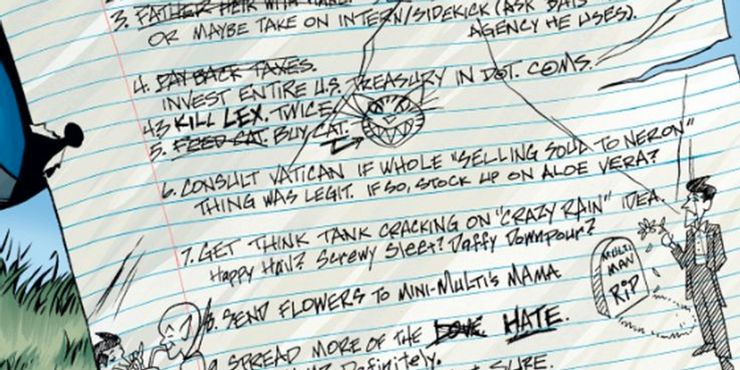 3. FATHER HEIR WITH
OR MAYBE TAKE ON INTERN/SIDEKICK (ASK BATS
AGENCY HE USES).
4. PAY BACK TAXES.
INVEST ENTIRE U.S. TREASURY IN DOT. COMS.
4 1/2 KILL LEX. TWICE.
5. FEED CAT. BUY CAT.
6. CONSULT VATICAN IF WHOLE "SELLING SOUL TO NERON"
THING WAS LEGIT. IF SO, STOCK UP ON ALOE VERA?
7. GET THINK TANK CRACKING ON "CRAZY RAIN" IDEA.
Happy Hail? Screwy Sleet? Daffy Downpour?
8. SEND FLOWERS TO MINI-MULTI'S MAMA
MULTI
MAN
RIP
9. SPREAD MORE OF THE LOVE HATE.
Definitely.
SURE.